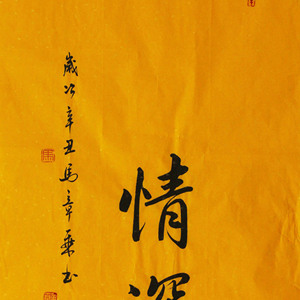 情深
歲次辛丑馬章乘书